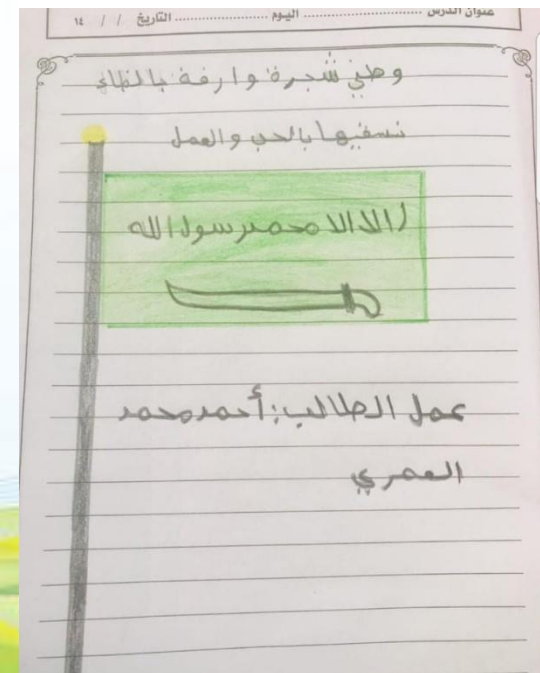 عنوان الدرس ........................ اليوم ........................ التاريخ / / ١٤
وطني شجرة وارفة بالظلى
نسقيها بالحب والعمل
الا الا محمد رسول الله
عمل الطالب: أحمد محمد
العمري